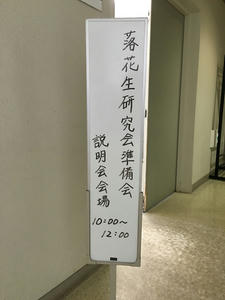 落花生研究会準備会
説明会会場
10:00〜
12:00